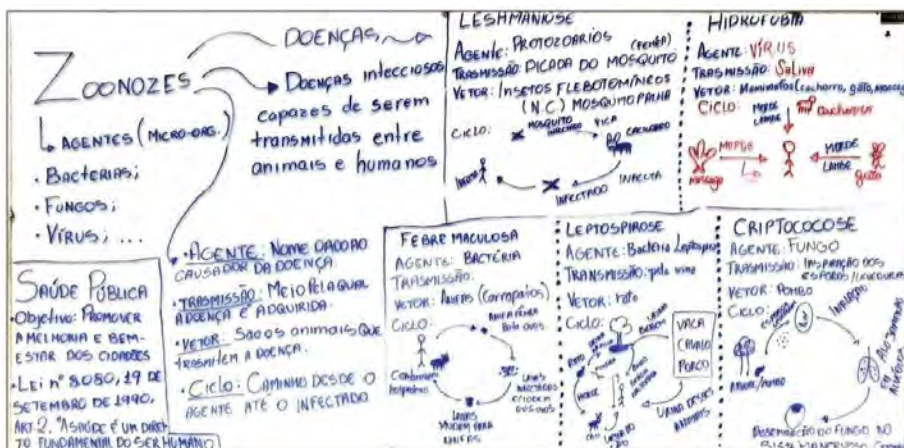 ZOONOZES
DOENÇAS
DOENÇAS INFECCIOSAS
CAPAZES DE SEREM
TRANSMITIDAS ENTRE
ANIMAIS E HUMANOS
AGENTES (MICRO-ORG.)
• BACTERIAS;
• FUNGOS;
• VÍRUS; ...
SAÚDE PÚBLICA
• Objetivo: PROMOVER
A MELHORIA E BEM-
ESTAR DOS CIDADÕES
• LEI nº 8.080, 19 DE
SETEMBRO DE 1990.
ART. 2. "A SAÚDE É UM DIREI-
TO FUNDAMENTAL DO SER HUMANO
• AGENTE: NOME DADO AO
CAUSADOR DA DOENÇA
• TRASMISSÃO: MEIO PELA QUAL
A DOENÇA É ADQUIRIDA.
• VETOR: SÃO OS ANIMAIS QUE
TRASMITEM A DOENÇA.
• CICLO: CAMINHO DESDE O
AGENTE ATÉ O INFECTADO
LESHMANIOSE
AGENTE: PROTOZOÁRIOS
(FEMÊA)
TRASMISSÃO: PICADA DO MOSQUITO
VETOR: INSETOS FLEBOTOMÍNICOS
(N.C.) MOSQUITO PALHA
CICLO:
MOSQUITO
PICA
CACHORRO
INFECTA
INFECTADO
HIDROFOBIA
AGENTE: VÍRUS
TRASMISSÃO: Saliva
VETOR: Mamíferos (cachorro, gato, morcego
CICLO:
MORDE
LAMBE
cachorro
MORDE
morcego
MORDE
LAMBE
gato
FEBRE MACULOSA
AGENTE: BACTÉRIA
TRASMISSÃO:
VETOR: (Carrapatos)
CICLO:
Contamina
hospedeiro
LEPTOSPIROSE
AGENTE: Bactéria
TRANSMISSÃO: pela urina
VETOR: rato
CICLO:
VACA
CAVALO
PORCO
URINA DESSES
ANIMAIS
CRIPTOCOCOSE
AGENTE: FUNGO
TRASMISSÃO: INSPIRAÇÃO DOS
ESPOROS/LEVEDURAS
VETOR: POMBO
CICLO:
INALAÇÃO
DISSEMINAÇÃO DO FUNGO NO